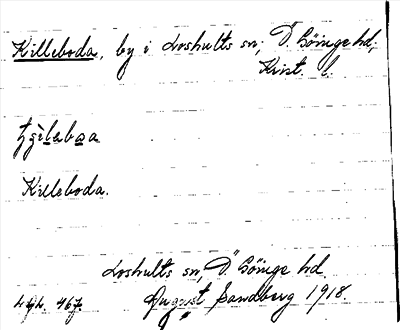 Killeboda, by i Loshults sn; Ö. Göinge hd;
Krist. l.
Killeboda.
Loshults sn, Ö. Göinge hd.
August Sandberg 1918.
467.